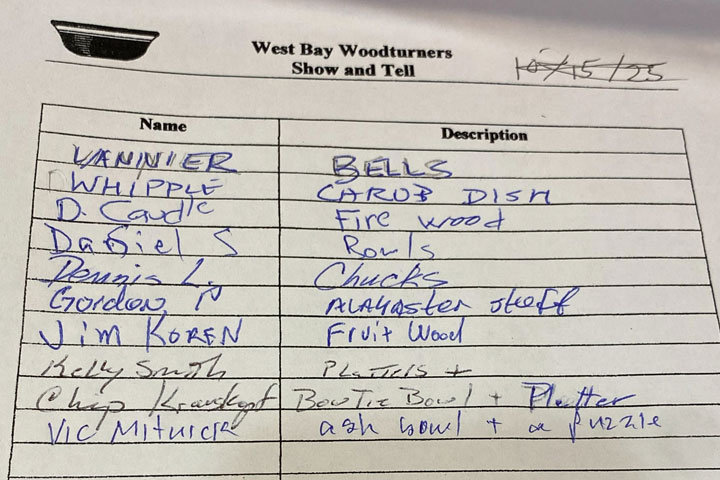 West Bay Woodturners
Show and Tell
10/15/25
Name Description
VANNIER BELLS
WHIPPLE CAROB DISH
D. Caudle Fire wood
Daniel S Bowls
Dennis L. Chucks
Gordon N Alabaster stuff
Jim KOREN Fruit Wood
Kelly Smith PLATTERS +
Chip Krauskopf BowTie Bowl + Platter
Vic Mitnick ash bowl + a puzzle